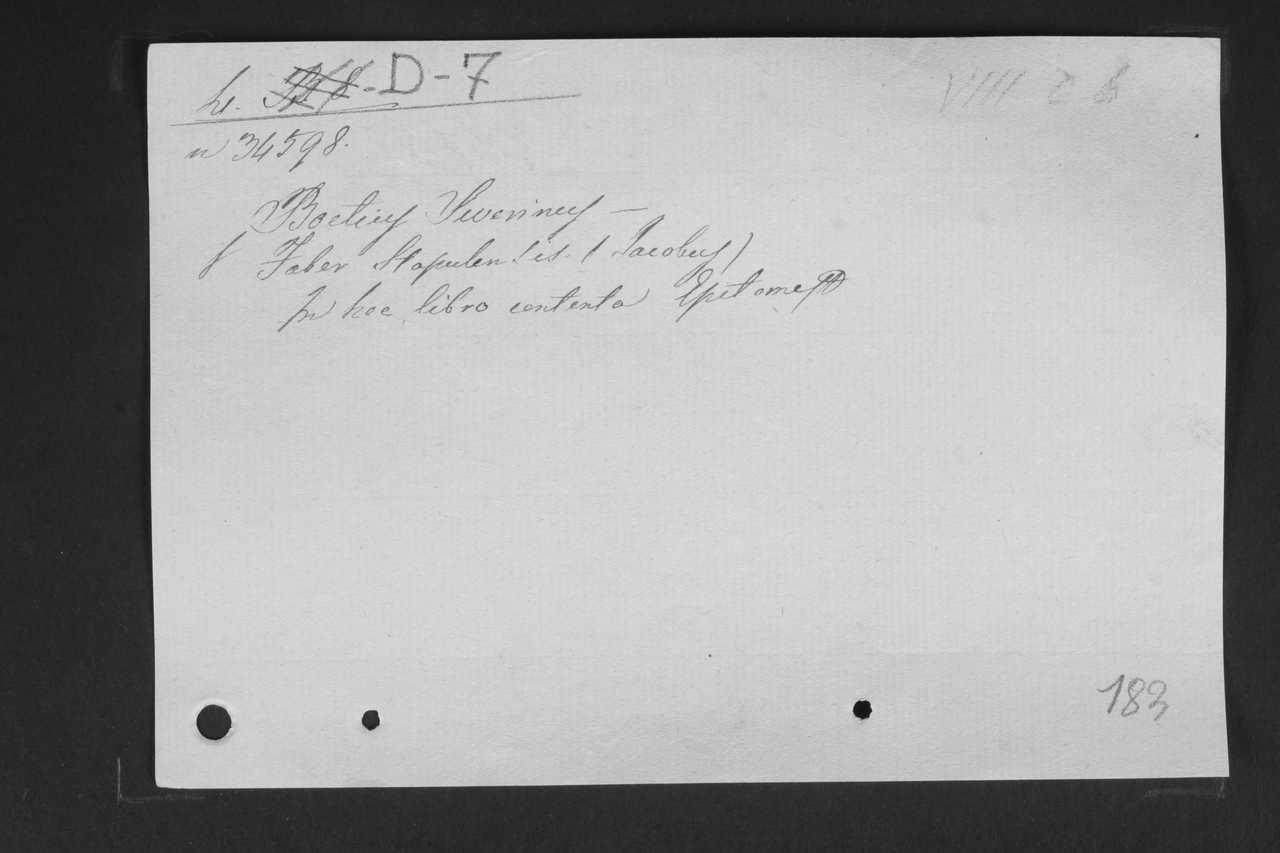 D-7
VIII 2 b
n 34598.
Boetius Severinus —
f Faber Stapulensis (Jacobus)
In hoc libro contenta Epitome
183